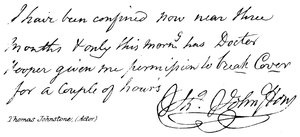 I have been confined now near three
months & only this mornᵍ has Doctor
Cooper given me permission to break Cover
for a couple of hours
Thoˢ. Johnstone
Thomas Johnstone, (Actor)